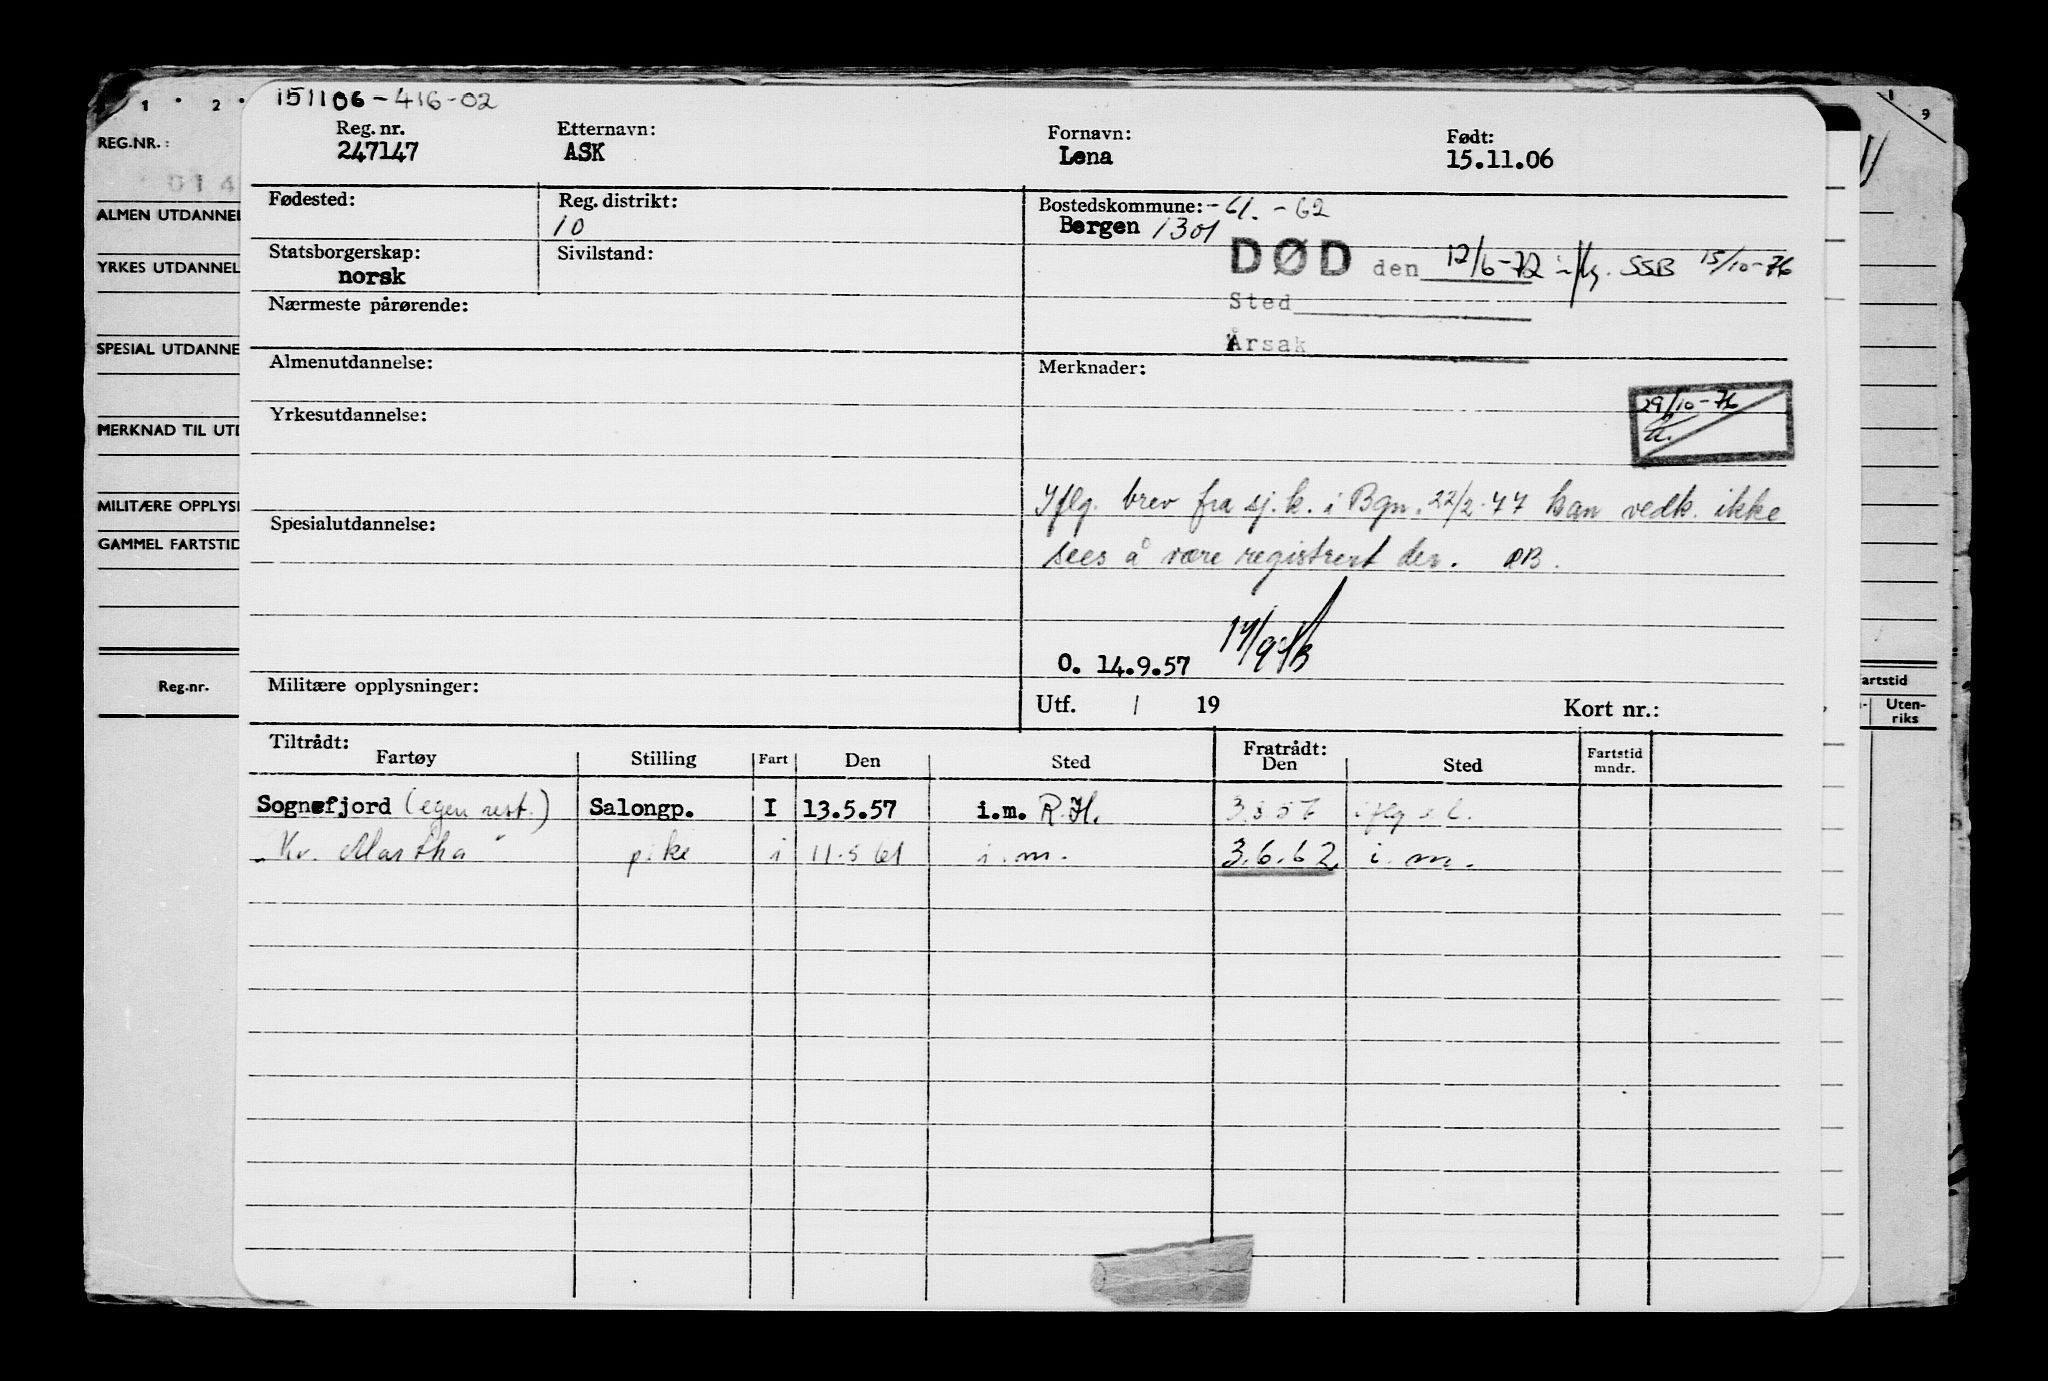 1 . 2 .
9
REG.NR.:
ALMEN UTDANNEL
YRKES UTDANNEL
SPESIAL UTDANNE
MERKNAD TIL UTD
MILITÆRE OPPLYSN
GAMMEL FARTSTID
Reg.nr.
artstid
Uten-
riks
151106-416-02
Reg. nr. Etternavn: Fornavn: Født:
247147 ASK Lena 15.11.06
Fødested: Reg. distrikt: Bostedskommune: -61. -62
10 Bergen 1301
Statsborgerskap: Sivilstand: DØD den 12/6-72 iflg. SSB 15/10-76
norsk
Nærmeste pårørende: Sted
Årsak
Almenutdannelse: Merknader:
Yrkesutdannelse: 29/10-76
Iflg. brev fra sj.k. i Bgn. 22/2-77 kan vedk. ikke
Spesialutdannelse:
sees å være registrert der. AB.
O. 14.9.57 17/9
Militære opplysninger:
Utf. / 19 Kort nr.:
Tiltrådt: Fratrådt:
Fartøy Stilling Fart Den Sted Den Sted Fartstid
mndr.
Sognefjord (egen rest.) Salongp. I 13.5.57 i.m. R.H. 3.8.57 iflg s.l.
"Kr. Martha" pike i 11.5.61 i.m. 3.6.62. i.m.